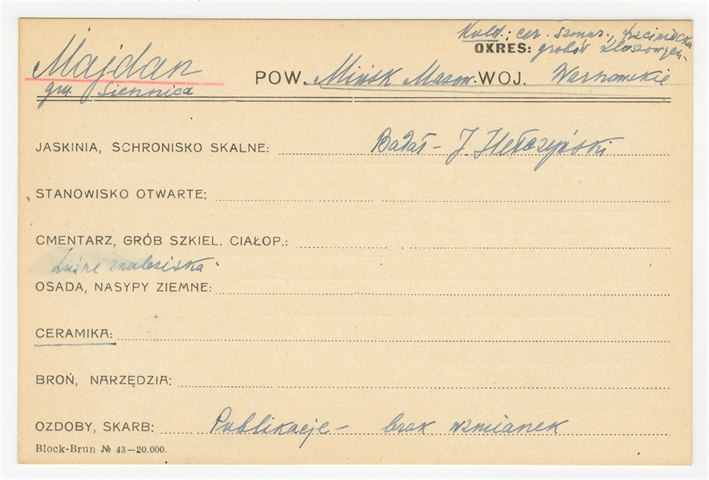 Kult.: cer. sznur., trzciniecka
OKRES: grobów kloszowych
Majdan POW. Mińsk Mazow. WOJ. Warszawskie
gm. Siennica
JASKINIA, SCHRONISKO SKALNE: Badał - J.
STANOWISKO OTWARTE:
CMENTARZ, GRÓB SZKIEL. CIAŁOP.:
Luźne znaleziska
OSADA, NASYPY ZIEMNE:
CERAMIKA:
BROŃ, NARZĘDZIA:
OZDOBY, SKARB: Publikacje - brak wzmianek
Block-Brun № 43—20.000.